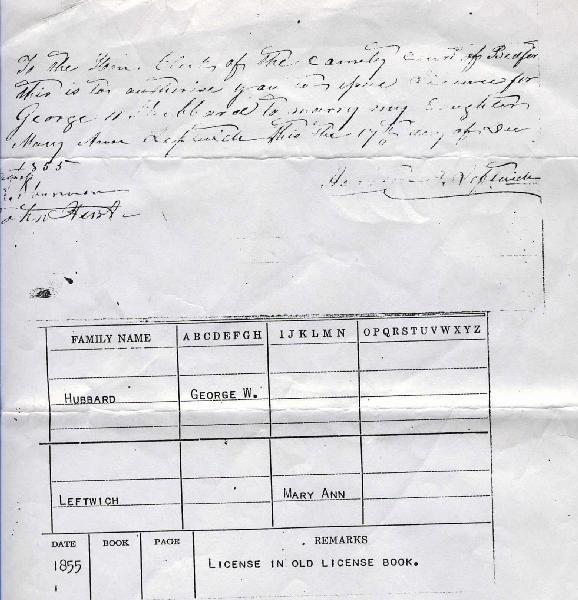 To the Hon. Clerk of the County Court of Bedfor
this is to authorise you to issue License for
George W Hubbard to marry my daughter
Mary Ann Leftwich this the 17th day of Dec
1855
Leftwich
John Hurt
FAMILY NAME ABCDEFGH IJKLMN OPQRSTUVWXYZ
HUBBARD GEORGE W.
LEFTWICH MARY ANN
DATE BOOK PAGE REMARKS
1855 LICENSE IN OLD LICENSE BOOK.